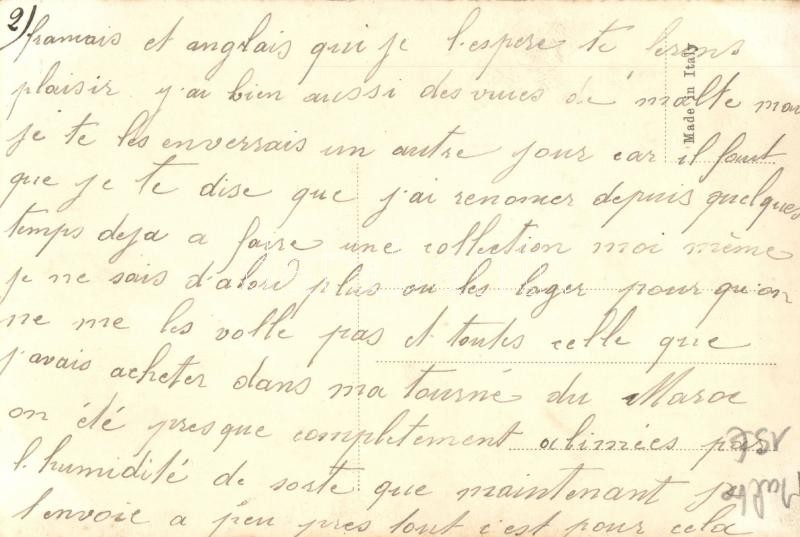 2)
francais et anglais qui je l'espere te ferons
plaisir. j'ai bien aussi des vues de malte mai
je te les enverrais un autre jour car il faut
que je te dise que j'ai renoncer depuis quelques
temps deja a faire une collection moi même
je ne sais d'abord plus ou les loger pour qu'on
ne me les volle pas et toutes celle que
j'avais acheter dans ma tourné du Maroc
on été presque completement abimées par
l'humidité de sorte que maintenant je
l'envoie a peu pres tout c'est pour cela
Made in Italy
Malte